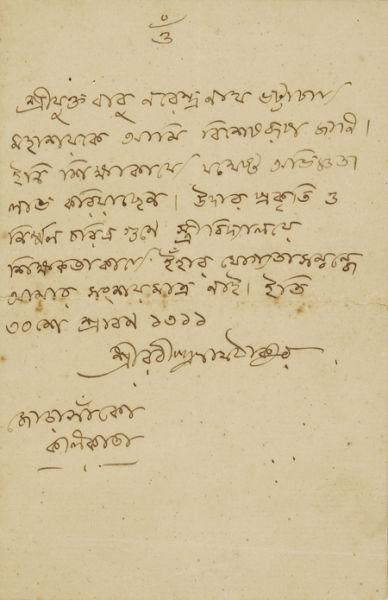 ওঁ
শ্রীযুক্ত বাবু নরেন্দ্রনাথ ভট্টাচার্য্য
মহাশয়কে আমি বিশেষরূপ জানি।
ইনি শিক্ষাকার্য্যে যথেষ্ট অভিজ্ঞতা
লাভ করিয়াছেন। উদার প্রকৃতি ও
নির্ম্মল চরিত্র গুণে স্ত্রীবিদ্যালয়ে
শিক্ষকতাকার্য্যে ইঁহার যোগ্যতাসম্বন্ধে
আমার সংশয়মাত্র নাই। ইতি
৩০শে শ্রাবণ ১৩১১
শ্রীরবীন্দ্রনাথ ঠাকুর
জোড়াসাঁকো
কলিকাতা